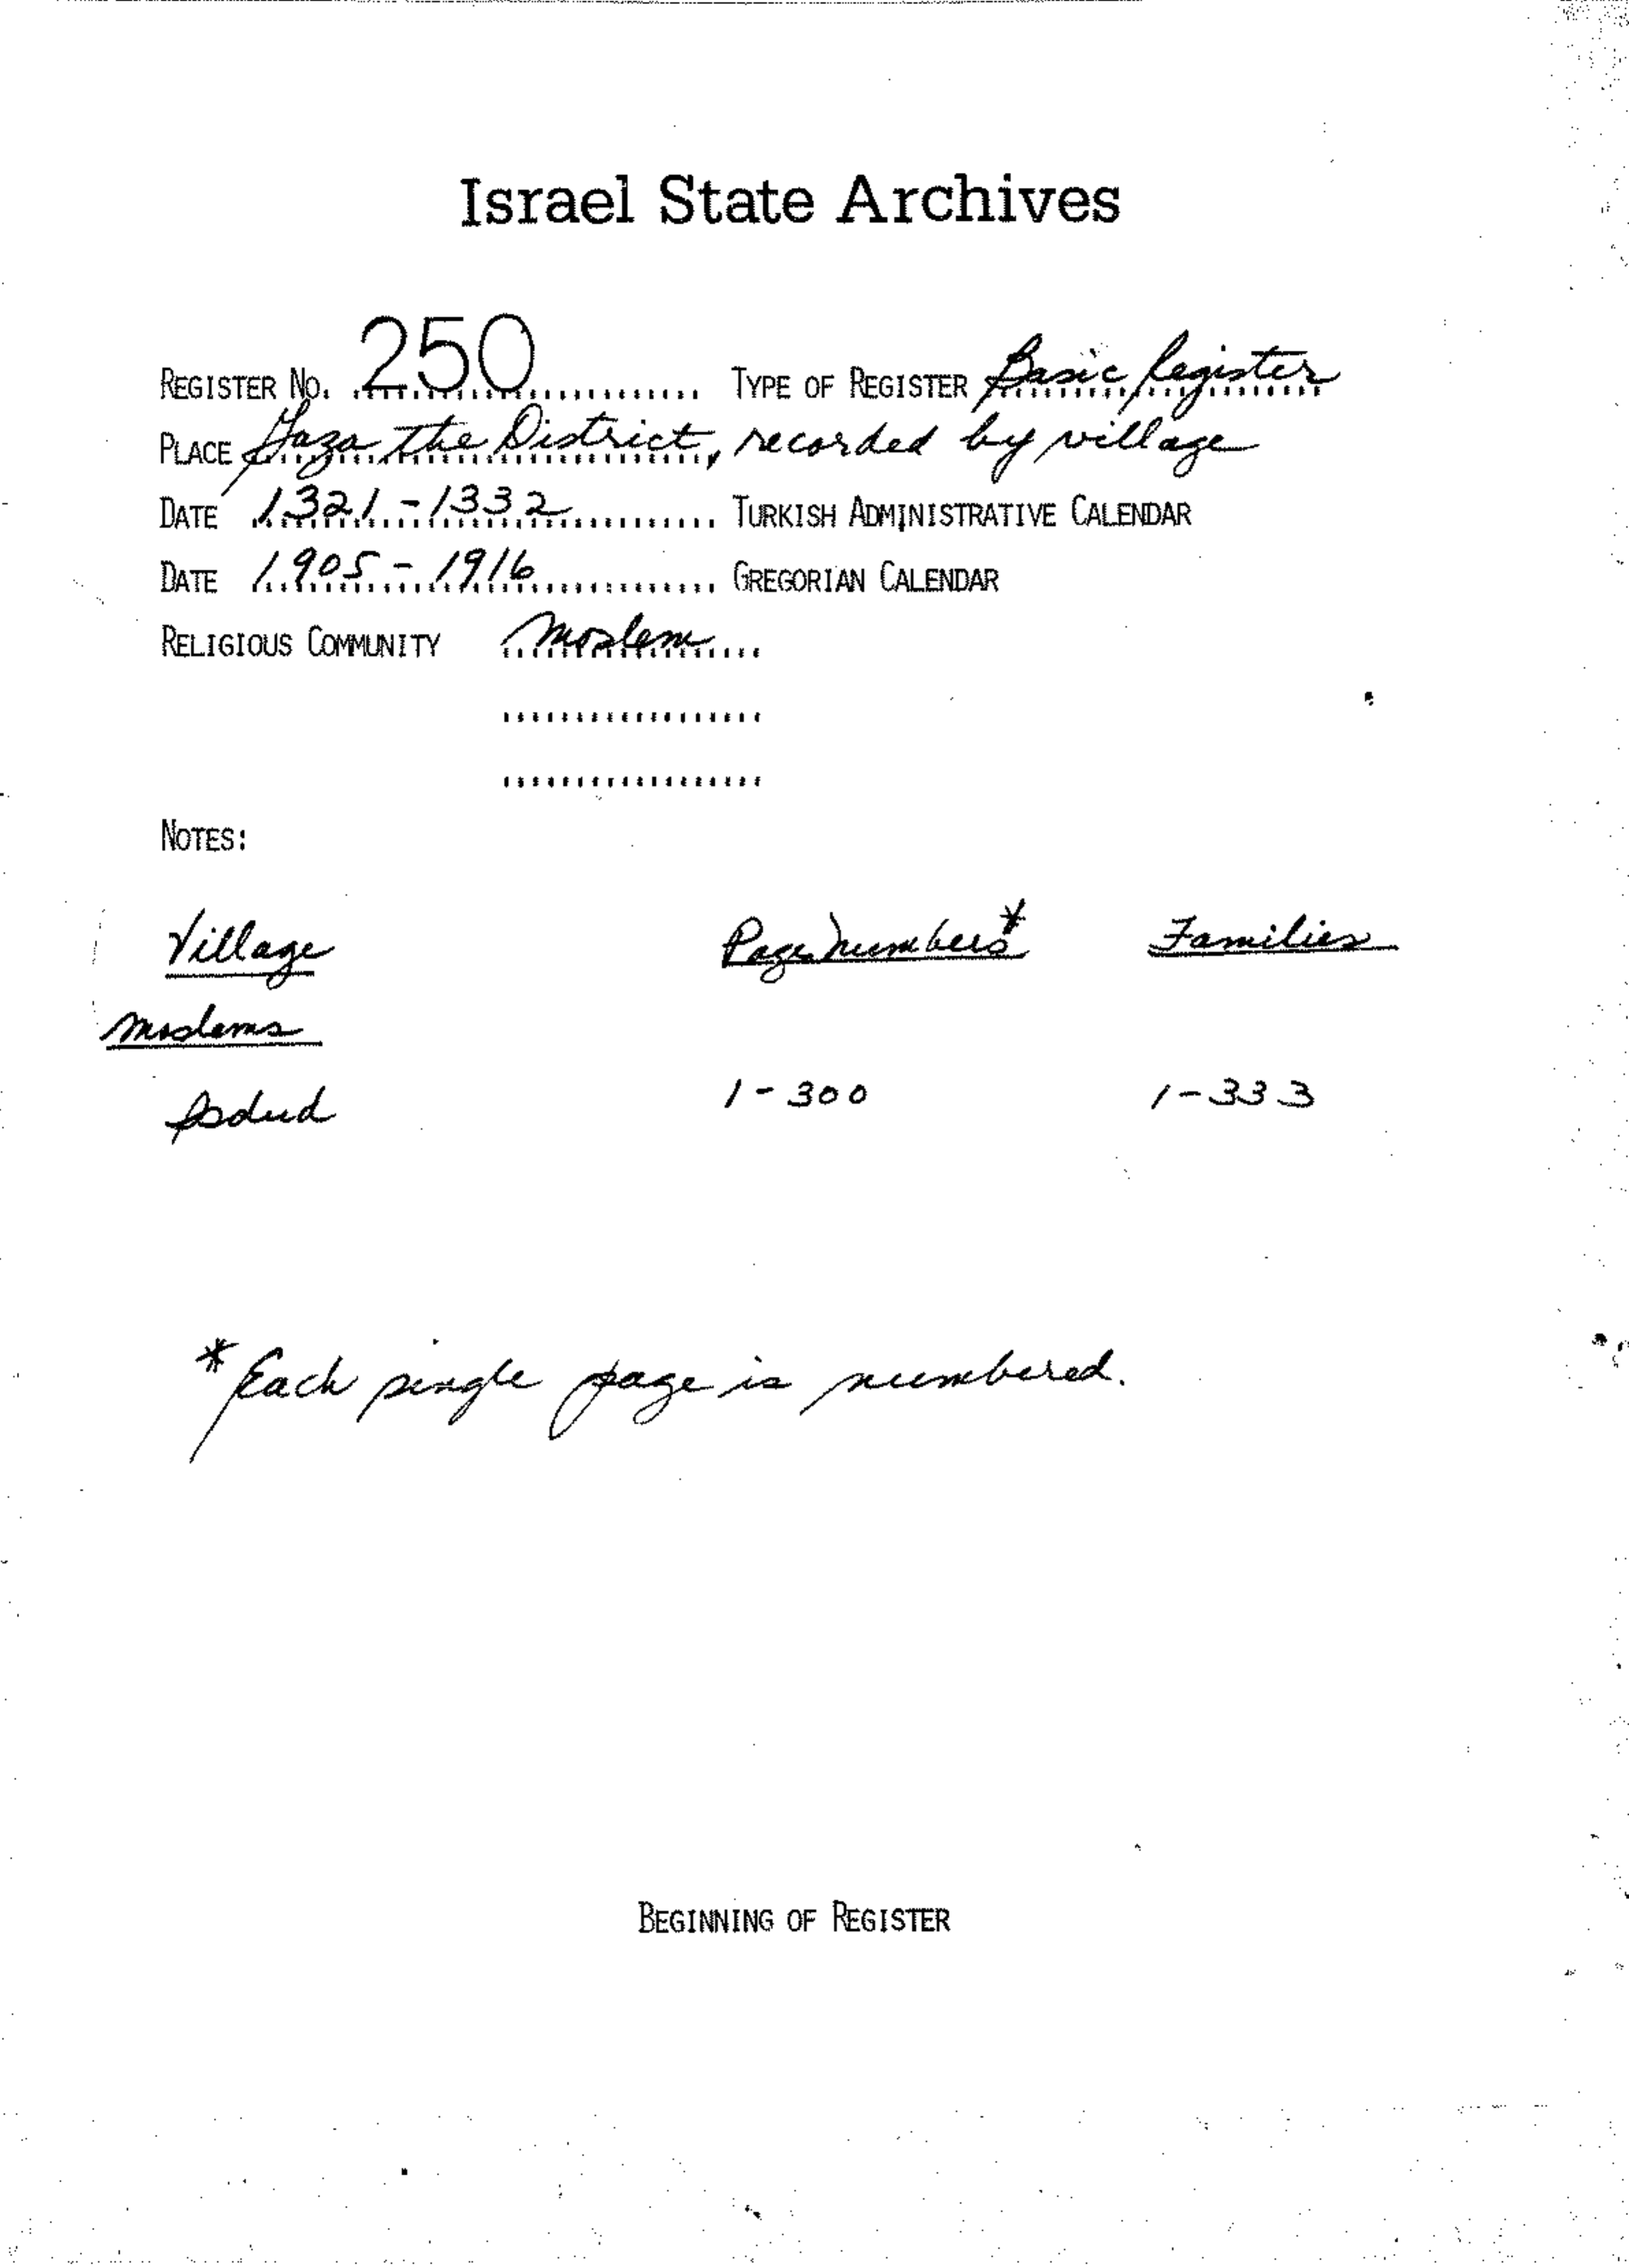 Israel State Archives
REGISTER NO. 250 TYPE OF REGISTER Basic Register
PLACE Gaza the District, recorded by village
DATE 1321-1332 TURKISH ADMINISTRATIVE CALENDAR
DATE 1905-1916 GREGORIAN CALENDAR
RELIGIOUS COMMUNITY Moslem
NOTES:
Village Page Numbers* Families
Moslems
Isdud 1-300 1-333
* Each single page is numbered.
BEGINNING OF REGISTER